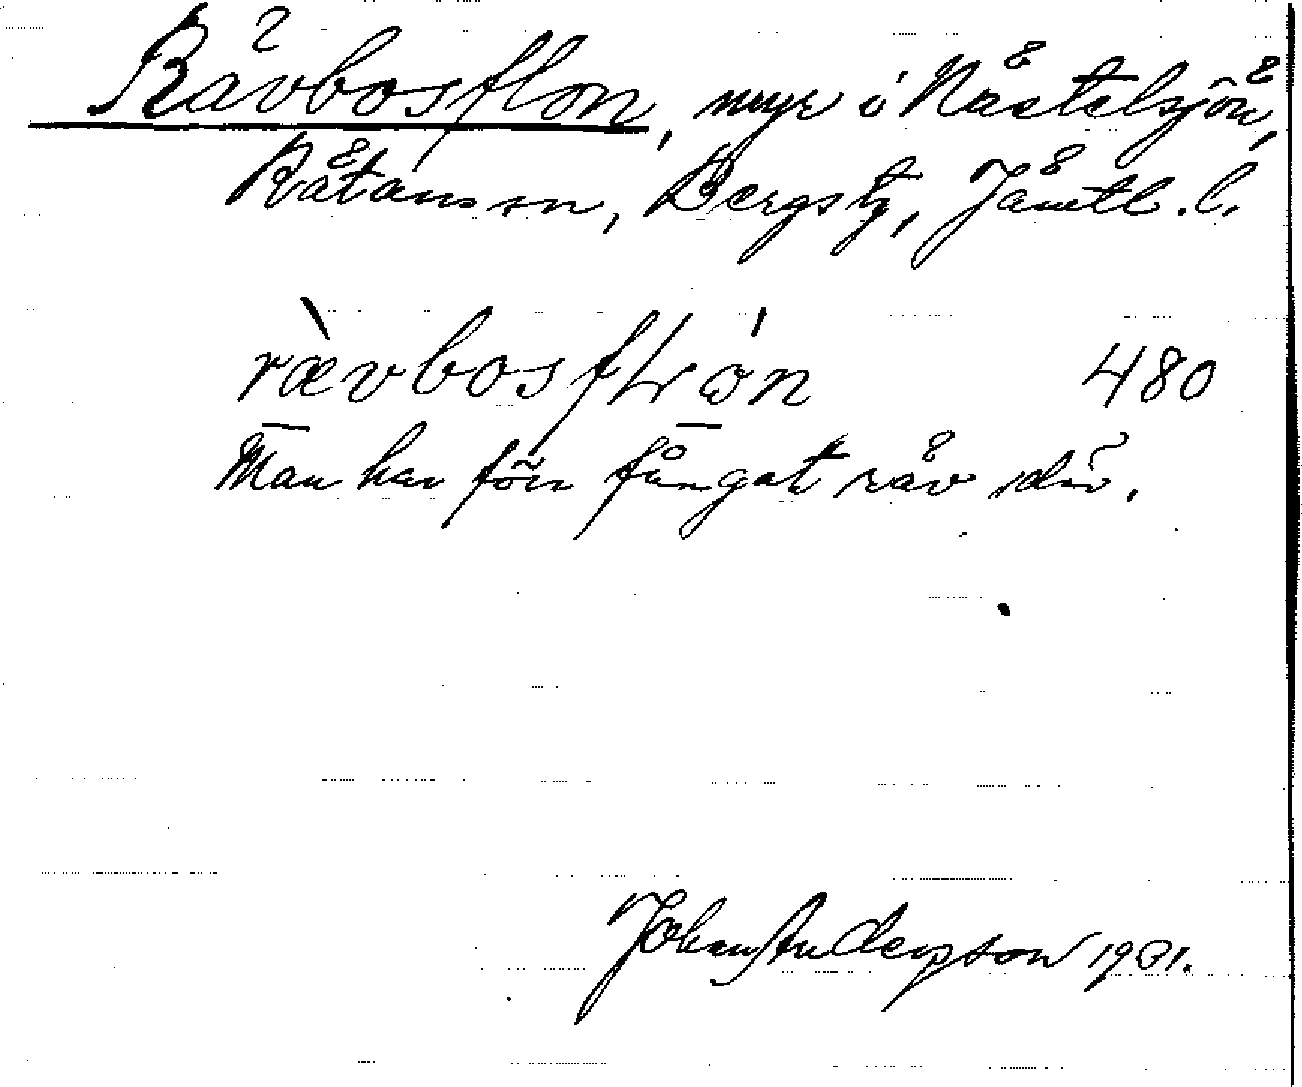 Rävbosflon, myr i Nästelsjön,
Rätans sn, Bergs tg, Jämtl. l.
rævbosflon 480
Man har förr fångat räv där.
Johan Anderson 1931.